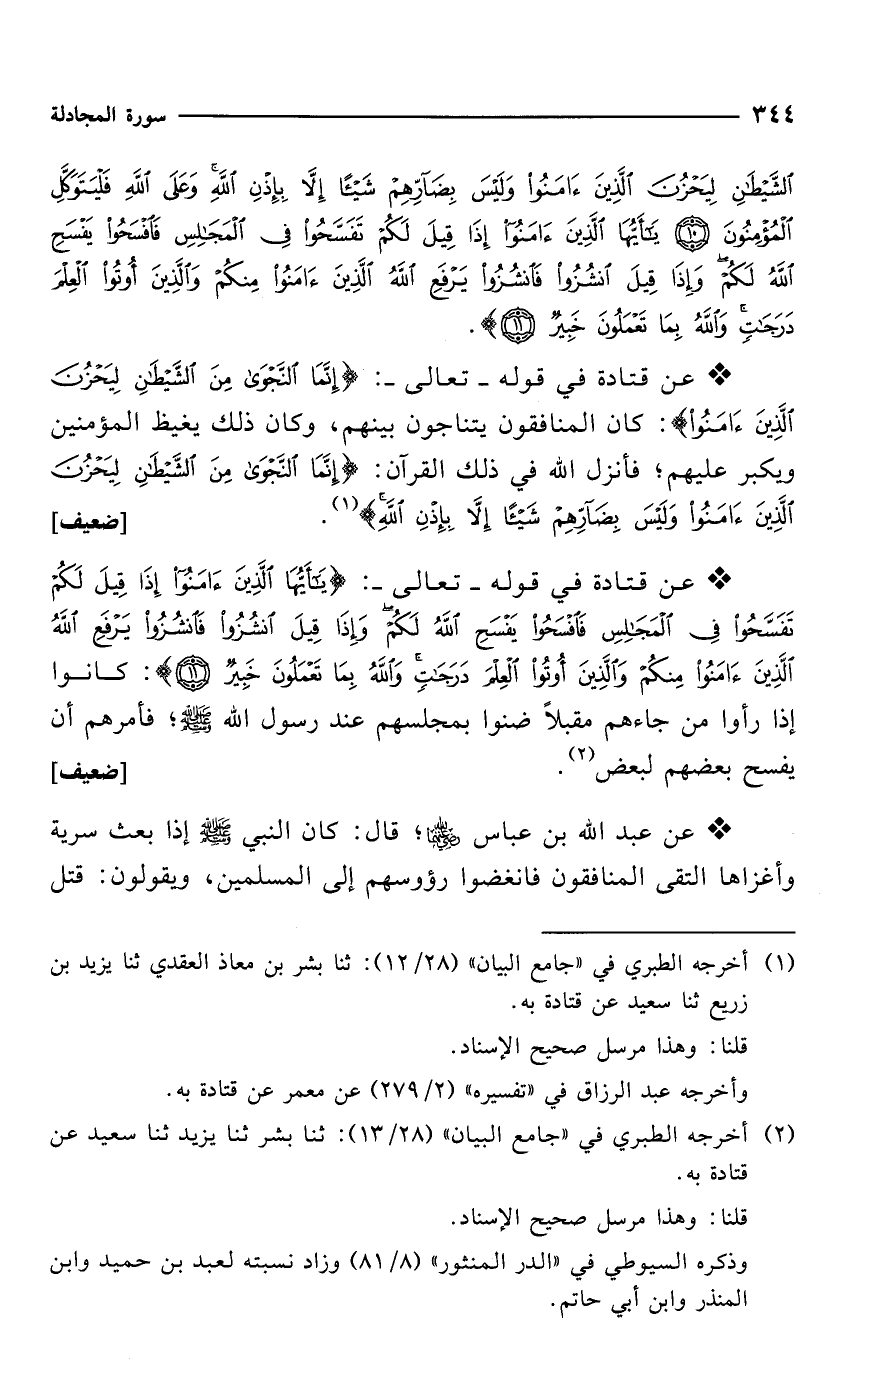 ٣٤٤ سورة المجادلة
ٱلشَّيْطَٰنِ لِيَحْزُنَ ٱلَّذِينَ ءَامَنُوا۟ وَلَيْسَ بِضَآرِّهِمْ شَيْـًٔا إِلَّا بِإِذْنِ ٱللَّهِ ۚ وَعَلَى ٱللَّهِ فَلْيَتَوَكَّلِ
ٱلْمُؤْمِنُونَ ﴿١٠﴾ يَٰٓأَيُّهَا ٱلَّذِينَ ءَامَنُوٓا۟ إِذَا قِيلَ لَكُمْ تَفَسَّحُوا۟ فِى ٱلْمَجَٰلِسِ فَٱفْسَحُوا۟ يَفْسَحِ
ٱللَّهُ لَكُمْ ۖ وَإِذَا قِيلَ ٱنشُزُوا۟ فَٱنشُزُوا۟ يَرْفَعِ ٱللَّهُ ٱلَّذِينَ ءَامَنُوا۟ مِنكُمْ وَٱلَّذِينَ أُوتُوا۟ ٱلْعِلْمَ
دَرَجَٰتٍ ۚ وَٱللَّهُ بِمَا تَعْمَلُونَ خَبِيرٌ ﴿١١﴾﴾.
❖ عن قتادة في قوله ـ تعالى ـ: ﴿إِنَّمَا ٱلنَّجْوَىٰ مِنَ ٱلشَّيْطَٰنِ لِيَحْزُنَ
ٱلَّذِينَ ءَامَنُوا۟﴾: كان المنافقون يتناجون بينهم، وكان ذلك يغيظ المؤمنين
ويكبر عليهم؛ فأنزل الله في ذلك القرآن: ﴿إِنَّمَا ٱلنَّجْوَىٰ مِنَ ٱلشَّيْطَٰنِ لِيَحْزُنَ
ٱلَّذِينَ ءَامَنُوا۟ وَلَيْسَ بِضَآرِّهِمْ شَيْـًٔا إِلَّا بِإِذْنِ ٱللَّهِ ۚ﴾(١). [ضعيف]
❖ عن قتادة في قوله ـ تعالى ـ: ﴿يَٰٓأَيُّهَا ٱلَّذِينَ ءَامَنُوٓا۟ إِذَا قِيلَ لَكُمْ
تَفَسَّحُوا۟ فِى ٱلْمَجَٰلِسِ فَٱفْسَحُوا۟ يَفْسَحِ ٱللَّهُ لَكُمْ ۖ وَإِذَا قِيلَ ٱنشُزُوا۟ فَٱنشُزُوا۟ يَرْفَعِ ٱللَّهُ
ٱلَّذِينَ ءَامَنُوا۟ مِنكُمْ وَٱلَّذِينَ أُوتُوا۟ ٱلْعِلْمَ دَرَجَٰتٍ ۚ وَٱللَّهُ بِمَا تَعْمَلُونَ خَبِيرٌ ﴿١١﴾﴾: كـانـوا
إذا رأوا من جاءهم مقبلاً ضنوا بمجلسهم عند رسول الله ﷺ؛ فأمرهم أن
يفسح بعضهم لبعض(٢). [ضعيف]
❖ عن عبد الله بن عباس رضي الله عنهما؛ قال: كان النبي ﷺ إذا بعث سرية
وأغزاها التقى المنافقون فانغضوا رؤوسهم إلى المسلمين، ويقولون: قتل
(١) أخرجه الطبري في «جامع البيان» (٢٨/ ١٢): ثنا بشر بن معاذ العقدي ثنا يزيد بن
زريع ثنا سعيد عن قتادة به.
قلنا: وهذا مرسل صحيح الإسناد.
وأخرجه عبد الرزاق في «تفسيره» (٢/ ٢٧٩) عن معمر عن قتادة به.
(٢) أخرجه الطبري في «جامع البيان» (٢٨/ ١٣): ثنا بشر ثنا يزيد ثنا سعيد عن
قتادة به.
قلنا: وهذا مرسل صحيح الإسناد.
وذكره السيوطي في «الدر المنثور» (٨/ ٨١) وزاد نسبته لعبد بن حميد وابن
المنذر وابن أبي حاتم.